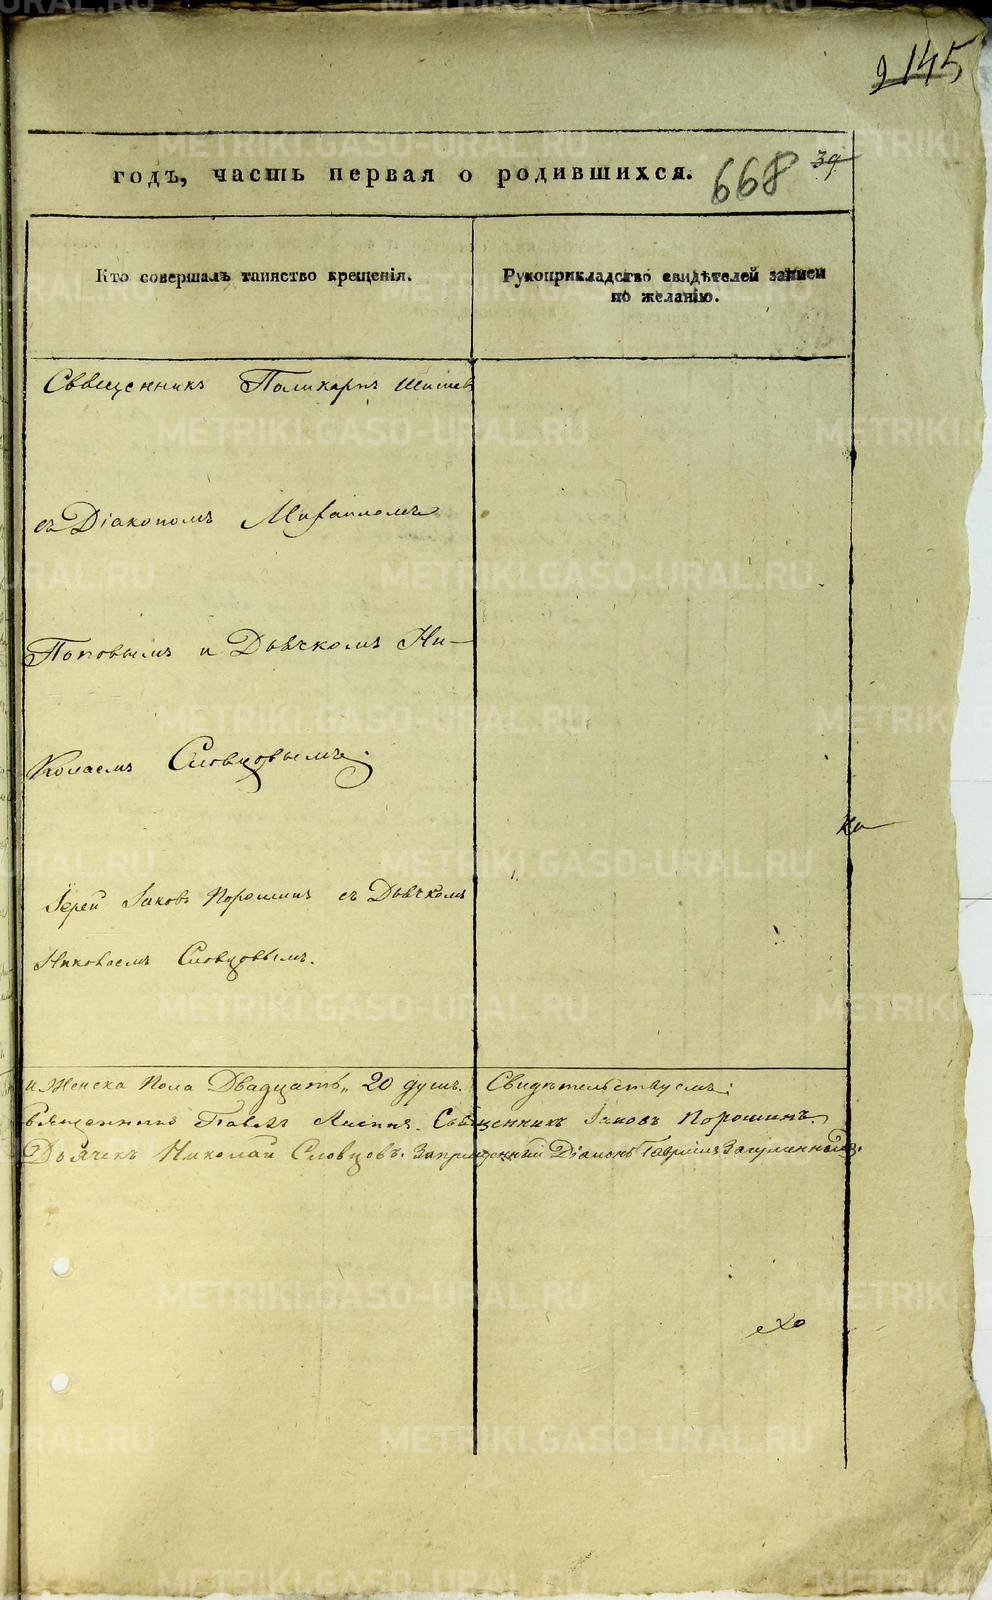 145
годъ, часть первая о родившихся.
668
39
Кто совершалъ таинство крещенія.
Рукоприкладство свидѣтелей записи
по желанію.
Священникъ Поликарпъ
съ Діакономъ Михаиломъ
Поповымъ и Дьячкомъ Ни-
колаемъ Словцовымъ.
Іерей Іаковъ Порошинъ съ Дьячкомъ
Николаемъ Словцовымъ.
и Женска Пола Двадцать 20 душъ. Свидѣтельствуемъ:
Павелъ Священникъ Іаковъ Порошинъ
Дьячекъ Николай Словцовъ. Запрещенный Діаконъ Гавріилъ
METRIKI.GASO-URAL.RU